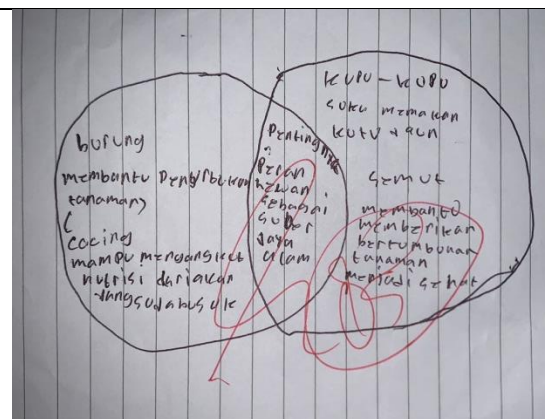 burung
membantu Pengirbukan
tanaman)
(
cacing
mampu mengangket
nutrisi dariakar
yang sudabusuk
Pentingnya
Peran
hewan
sebagai
suber
daya
alam
KUPU - KUPU
suku memakan
kutu daun
semut
membantu
memberikan
bertumbuhan
tanaman
menjadi sehat